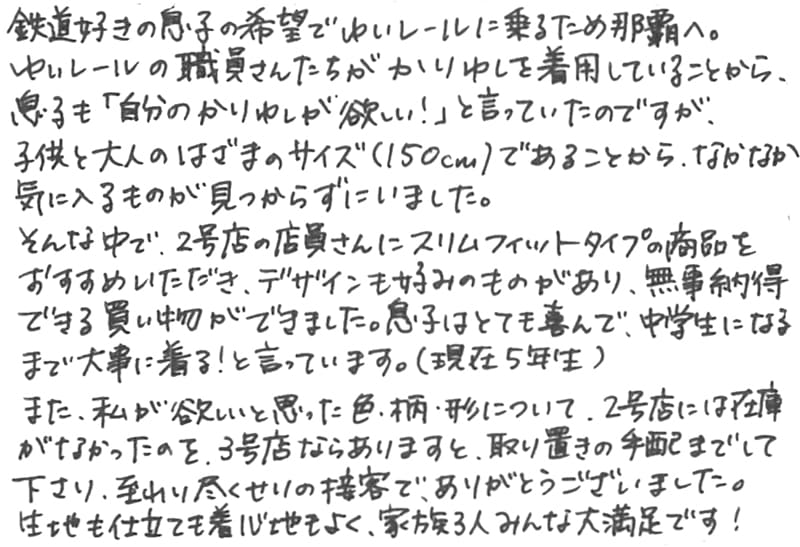 鉄道好きの息子の希望でゆいレールに乗るため那覇へ。
ゆいレールの職員さんたちがかりゆしを着用していることから、
息子も「自分のかりゆしが欲しい!」と言っていたのですが、
子供と大人のはざまのサイズ(150cm)であることから、なかなか
気に入るものが見つからずにいました。
そんな中で、2号店の店員さんにスリムフィットタイプの商品を
おすすめいただき、デザインも好みのものがあり、無事納得
できる買い物ができました。息子はとても喜んで、中学生になる
まで大事に着る!と言っています。(現在5年生)
また、私が欲しいと思った色・柄・形について、2号店には在庫
がなかったのを、3号店ならありますと、取り置きの手配までして
下さり、至れり尽くせりの接客で、ありがとうございました。
生地も仕立ても着心地もよく、家族3人みんな大満足です!